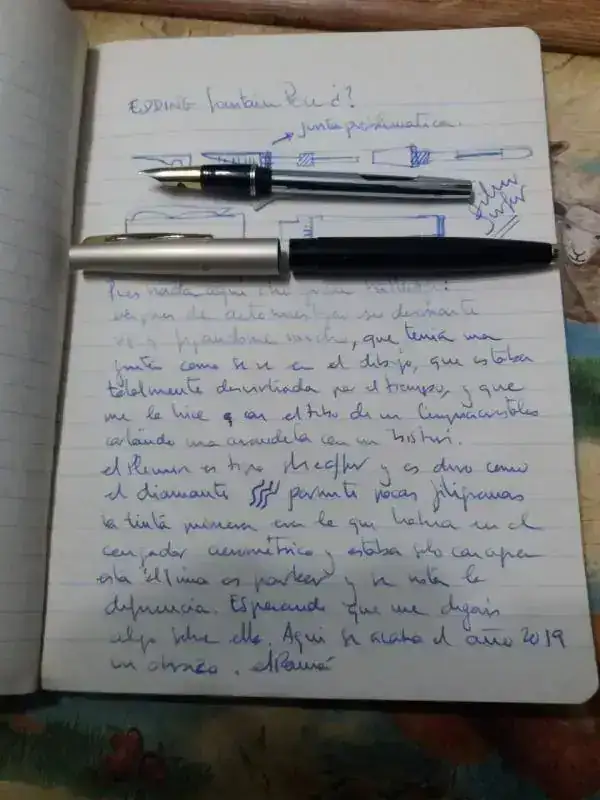 EDDING fountain Pen ¿?
junta prosimatica.
Silver Surfer
Pues hasta aqui
despues de su desmonte
y fijandome mucho, que tenia una
junta como se ve en el dibujo, que estaba
totalmente desvirtuada por el tiempo, y que
me la hice con el tubo de un limpiacristales
cortándo una arandela con un bisturi.
el Plumin es tipo Sheaffer y es duro como
el diamante permite pocas filigranas
la tintá primera era la que habia en el
cargador aerométrico y estaba solo con agua
esta última es parker y se nota la
diferencia. Esperando que me digais
algo sobre ella. Aqui se acaba el año 2019
un abrazo.